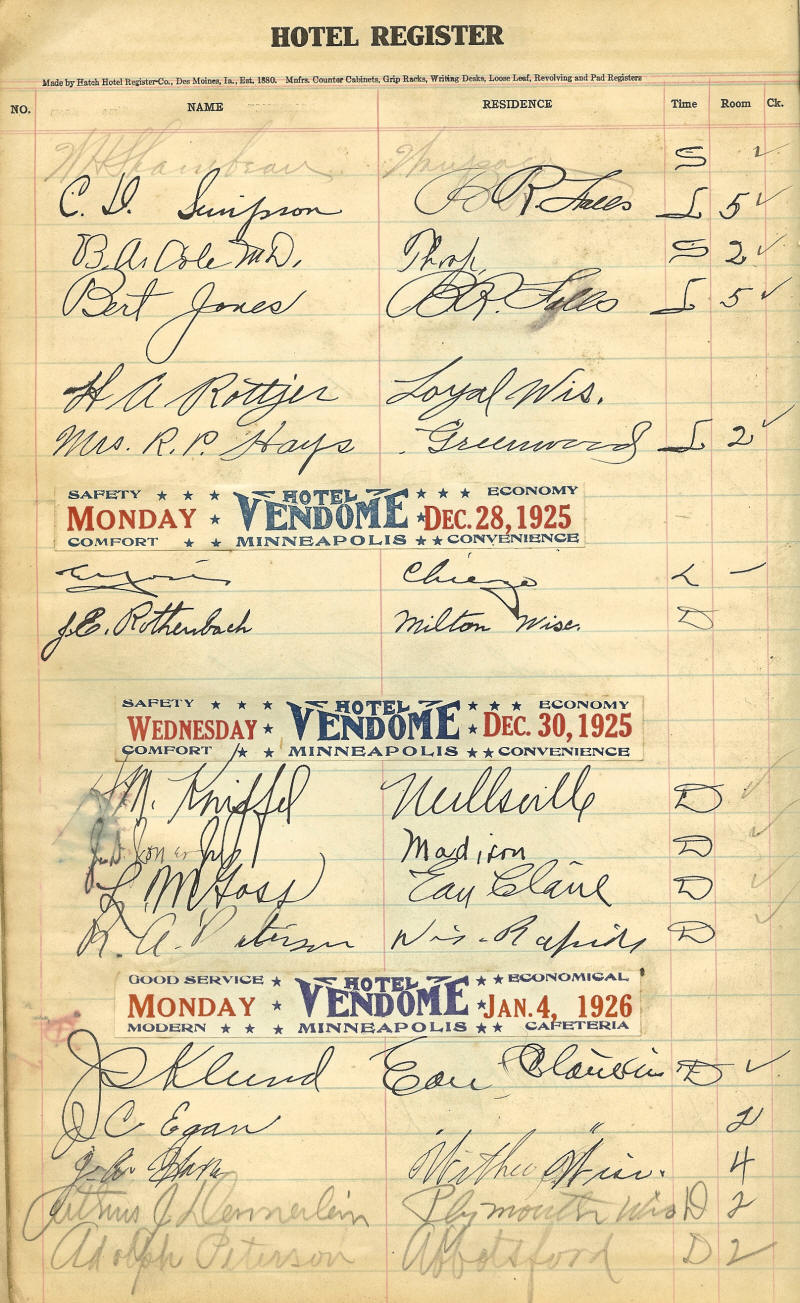 HOTEL REGISTER
Made by Hatch Hotel Register Co., Des Moines, Ia., Est. 1880. Mnfrs. Counter Cabinets, Grip Racks, Writing Desks, Loose Leaf, Revolving and Pad Registers
NO. NAME RESIDENCE Time Room Ck.
S ✓
C. D. Simpson B. R. Falls L 5 ✓
B. A. Cole M.D. Thorp, S 2 ✓
Bert Jones B. R. Falls L 5 ✓
H A Rottjer Loyal Wis.
Mrs. R. P. Hays Greenwood L 2 ✓
SAFETY ★ ★ ★ HOTEL ★ ★ ★ ECONOMY
MONDAY ★ VENDOME ★ DEC. 28, 1925
COMFORT ★ ★ MINNEAPOLIS ★ ★ CONVENIENCE
Chicago L –
J. E. Rothenbach Milton Wisc. D
SAFETY ★ ★ ★ HOTEL ★ ★ ★ ECONOMY
WEDNESDAY ★ VENDOME ★ DEC. 30, 1925
COMFORT ★ ★ MINNEAPOLIS ★ ★ CONVENIENCE
M. Kniffel Neillsville D ✓
Madison D ✓
L. M Goss Eau Claire D ✓
R. A. Peterson Wis. Rapids D ✓
GOOD SERVICE ★ HOTEL ★ ★ ECONOMICAL
MONDAY ★ VENDOME ★ JAN. 4, 1926
MODERN ★ ★ ★ MINNEAPOLIS ★ ★ CAFETERIA
J Eklund Eau Claire Wis D ✓
J C Egan " 2
Withee Wisc. 4
J Dennerlein Plymouth Wis D 2
Adolph Peterson Abbotsford D 2